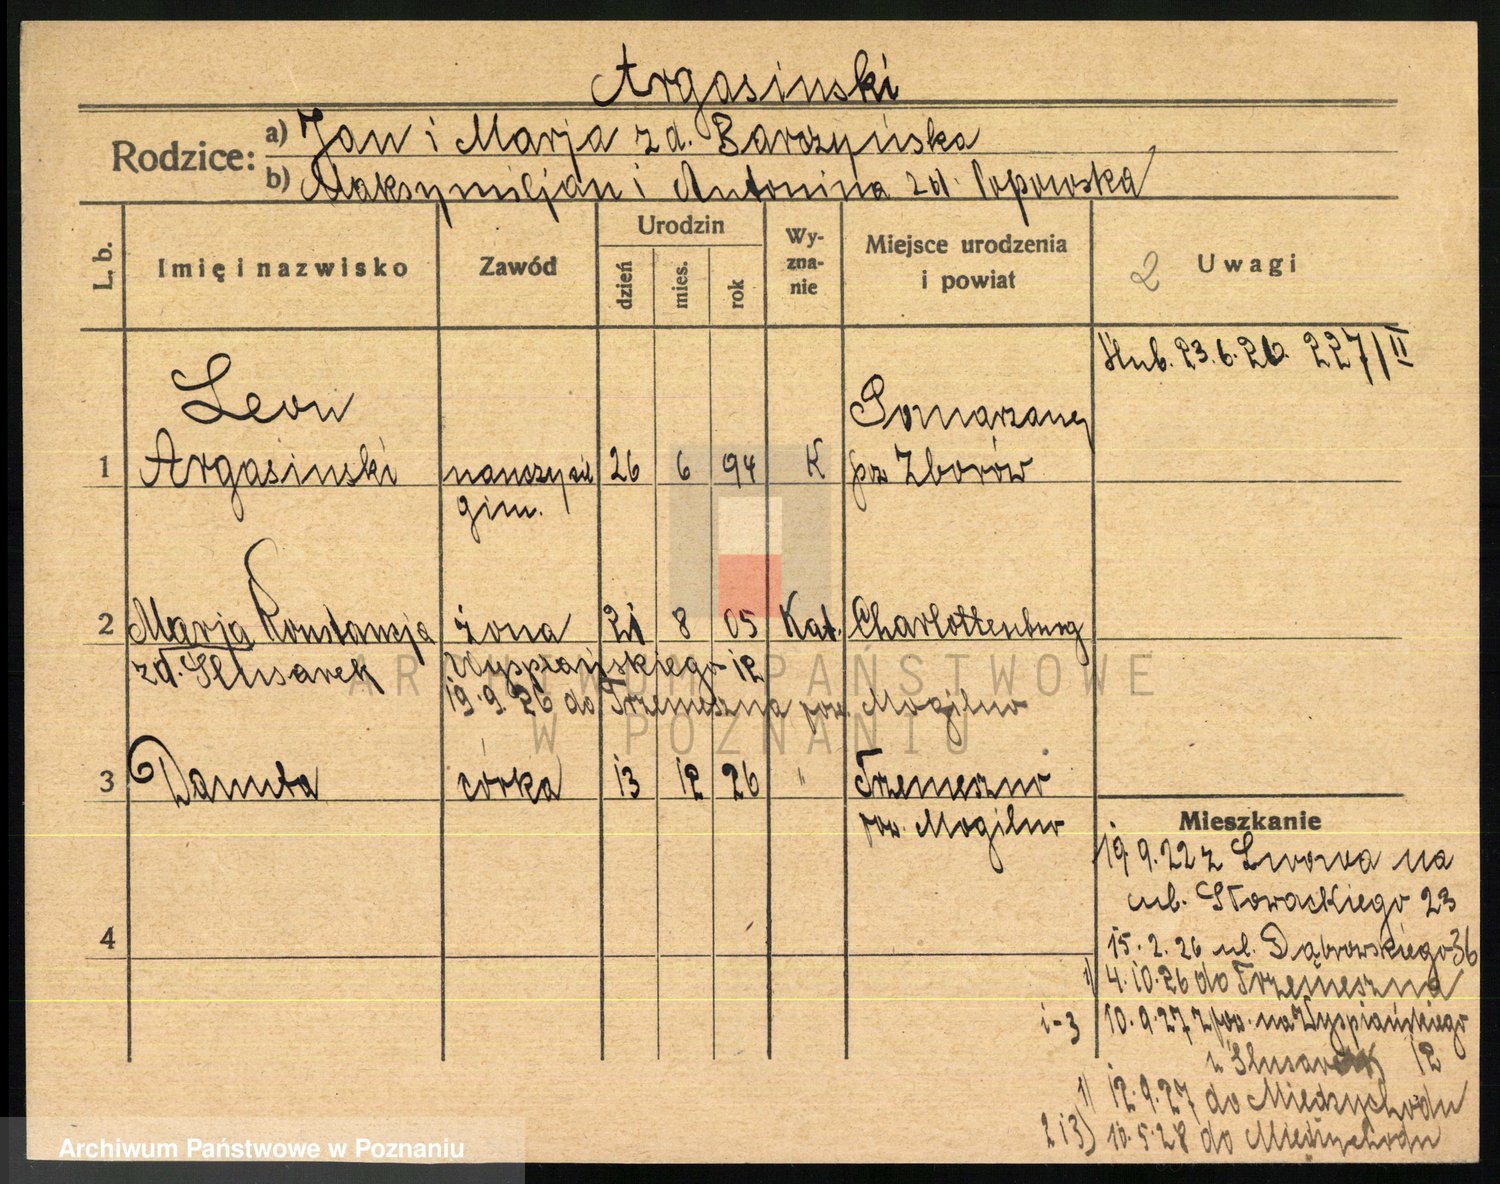 Argasinski
Rodzice:
a) Jan i Marja zd. Barszyńska
b) Maksymiljan i Antonina zd. Popowska
L. b.
Imię i nazwisko
Zawód
Urodzin
dzień
mies.
rok
Wy-
zna-
nie
Miejsce urodzenia
i powiat
2 Uwagi
ślub. 23.6.26. 227/II
Leon
Pomorzany
1 Argasinski nauczyciel 26 6 94 K pow Zborów
gim.
2 Marja Konstancja żona 21 8 05 Kat. Charlottenburg
zd. Slusarek Wyspiańskiego 12
19.9.26 do Trzemeszna pow. Mogilno
3 Danuta córka 13 12 26 " Trzemeszno
pow. Mogilno
4
Mieszkanie
19.9.22 z Lwowa na
ul. Słowackiego 23
15.2.26 ul. Dąbrowskiego 36
1) 4.10.26 do Trzemeszna
1-3 10.9.27 z pow. na Wyspiańskiego
u Slusarek 12
1) 12.9.27 do Miedzychodu
2 i 3) 10.5.28 do Miedzychodu
ARCHIWUM PAŃSTWOWE
W POZNANIU
Archiwum Państwowe w Poznaniu